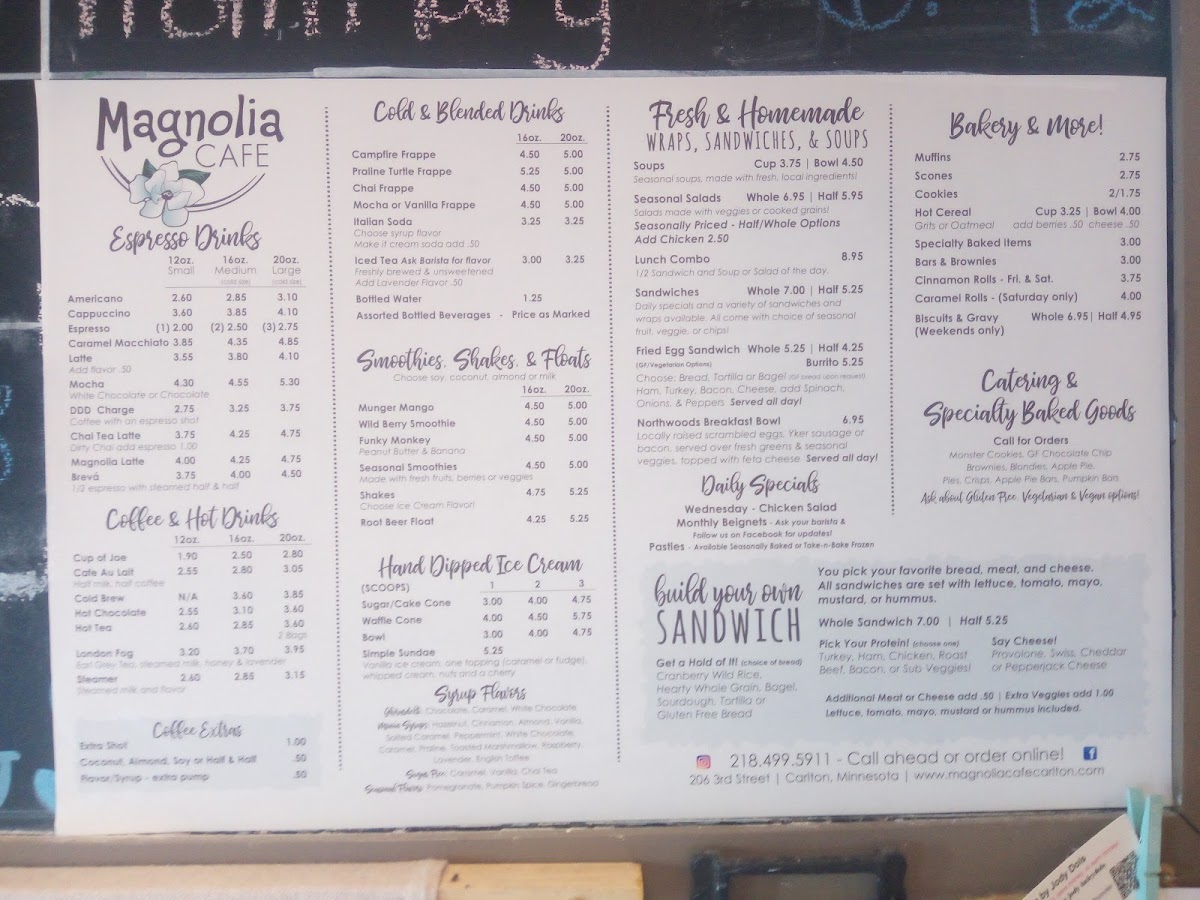 Magnolia
CAFE
Espresso Drinks
12oz. 16oz. 20oz.
Small Medium Large
(cold size) (cold size)
Americano 2.60 2.85 3.10
Cappuccino 3.60 3.85 4.10
Espresso (1) 2.00 (2) 2.50 (3) 2.75
Caramel Macchiato 3.85 4.35 4.85
Latte 3.55 3.80 4.10
Add flavor .50
Mocha 4.30 4.55 5.30
White Chocolate or Chocolate
DDD Charge 2.75 3.25 3.75
Coffee with an espresso shot
Chai Tea Latte 3.75 4.25 4.75
Dirty Chai add espresso 1.00
Magnolia Latte 4.00 4.25 4.75
Brevá 3.75 4.00 4.50
1/2 espresso with steamed half & half
Coffee & Hot Drinks
12oz. 16oz. 20oz.
Cup of Joe 1.90 2.50 2.80
Cafe Au Lait 2.55 2.80 3.05
Half milk, half coffee
Cold Brew N/A 3.60 3.85
Hot Chocolate 2.55 3.10 3.60
Hot Tea 2.60 2.85 3.60
2 Bags
London Fog 3.20 3.70 3.95
Earl Grey Tea, steamed milk, honey & lavender
Steamer 2.60 2.85 3.15
Steamed milk and flavor
Coffee Extras
Extra Shot 1.00
Coconut, Almond, Soy or Half & Half .50
Flavor/Syrup - extra pump .50
Cold & Blended Drinks
16oz. 20oz.
Campfire Frappe 4.50 5.00
Praline Turtle Frappe 5.25 5.00
Chai Frappe 4.50 5.00
Mocha or Vanilla Frappe 4.50 5.00
Italian Soda 3.25 3.25
Choose syrup flavor
Make it cream soda add .50
Iced Tea Ask Barista for flavor 3.00 3.25
Freshly brewed & unsweetened
Add Lavender Flavor .50
Bottled Water 1.25
Assorted Bottled Beverages - Price as Marked
Smoothies, Shakes, & Floats
Choose soy, coconut, almond or milk
16oz. 20oz.
Munger Mango 4.50 5.00
Wild Berry Smoothie 4.50 5.00
Funky Monkey 4.50 5.00
Peanut Butter & Banana
Seasonal Smoothies 4.50 5.00
Made with fresh fruits, berries or veggies
Shakes 4.75 5.25
Choose Ice Cream Flavor!
Root Beer Float 4.25 5.25
Hand Dipped Ice Cream
(SCOOPS) 1 2 3
Sugar/Cake Cone 3.00 4.00 4.75
Waffle Cone 4.00 4.50 5.75
Bowl 3.00 4.00 4.75
Simple Sundae 5.25
Vanilla ice cream, one topping (caramel or fudge),
whipped cream, nuts and a cherry
Syrup Flavors
Chocolate, Caramel, White Chocolate
Hazelnut, Cinnamon, Almond, Vanilla,
Salted Caramel, Peppermint, White Chocolate,
Caramel, Praline, Toasted Marshmallow, Raspberry,
Lavender, English Toffee
Sugar Free: Caramel, Vanilla, Chai Tea
Seasonal Flavors: Pomegranate, Pumpkin Spice, Gingerbread
Fresh & Homemade
WRAPS, SANDWICHES, & SOUPS
Soups Cup 3.75 | Bowl 4.50
Seasonal soups, made with fresh, local ingredients!
Seasonal Salads Whole 6.95 | Half 5.95
Salads made with veggies or cooked grains!
Seasonally Priced - Half/Whole Options
Add Chicken 2.50
Lunch Combo 8.95
1/2 Sandwich and Soup or Salad of the day.
Sandwiches Whole 7.00 | Half 5.25
Daily specials and a variety of sandwiches and
wraps available. All come with choice of seasonal
fruit, veggie, or chips!
Fried Egg Sandwich Whole 5.25 | Half 4.25
(GF/Vegetarian Options) Burrito 5.25
Choose: Bread, Tortilla or Bagel (GF bread upon request)
Ham, Turkey, Bacon, Cheese, add Spinach,
Onions, & Peppers Served all day!
Northwoods Breakfast Bowl 6.95
Locally raised scrambled eggs, Yker sausage or
bacon, served over fresh greens & seasonal
veggies, topped with feta cheese Served all day!
Daily Specials
Wednesday - Chicken Salad
Monthly Beignets - Ask your barista &
Follow us on Facebook for updates!
Pasties - Available Seasonally Baked or Take-n-Bake Frozen
Bakery & More!
Muffins 2.75
Scones 2.75
Cookies 2/1.75
Hot Cereal Cup 3.25 | Bowl 4.00
Grits or Oatmeal add berries .50 cheese .50
Specialty Baked Items 3.00
Bars & Brownies 3.00
Cinnamon Rolls - Fri. & Sat. 3.75
Caramel Rolls - (Saturday only) 4.00
Biscuits & Gravy Whole 6.95 | Half 4.95
(Weekends only)
Catering &
Specialty Baked Goods
Call for Orders
Monster Cookies, GF Chocolate Chip
Brownies, Blondies, Apple Pie,
Pies, Crisps, Apple Pie Bars, Pumpkin Bars
Ask about Gluten Free, Vegetarian & Vegan options!
build your own
SANDWICH
Get a Hold of It! (choice of bread)
Cranberry Wild Rice,
Hearty Whole Grain, Bagel,
Sourdough, Tortilla or
Gluten Free Bread
You pick your favorite bread, meat, and cheese.
All sandwiches are set with lettuce, tomato, mayo,
mustard, or hummus.
Whole Sandwich 7.00 | Half 5.25
Pick Your Protein! (choose one)
Turkey, Ham, Chicken, Roast
Beef, Bacon, or Sub Veggies!
Say Cheese!
Provolone, Swiss, Cheddar
or Pepperjack Cheese
Additional Meat or Cheese add .50 | Extra Veggies add 1.00
Lettuce, tomato, mayo, mustard or hummus included.
218.499.5911 - Call ahead or order online!
206 3rd Street | Carlton, Minnesota | www.magnoliacafecarlton.com
by Jody Dols